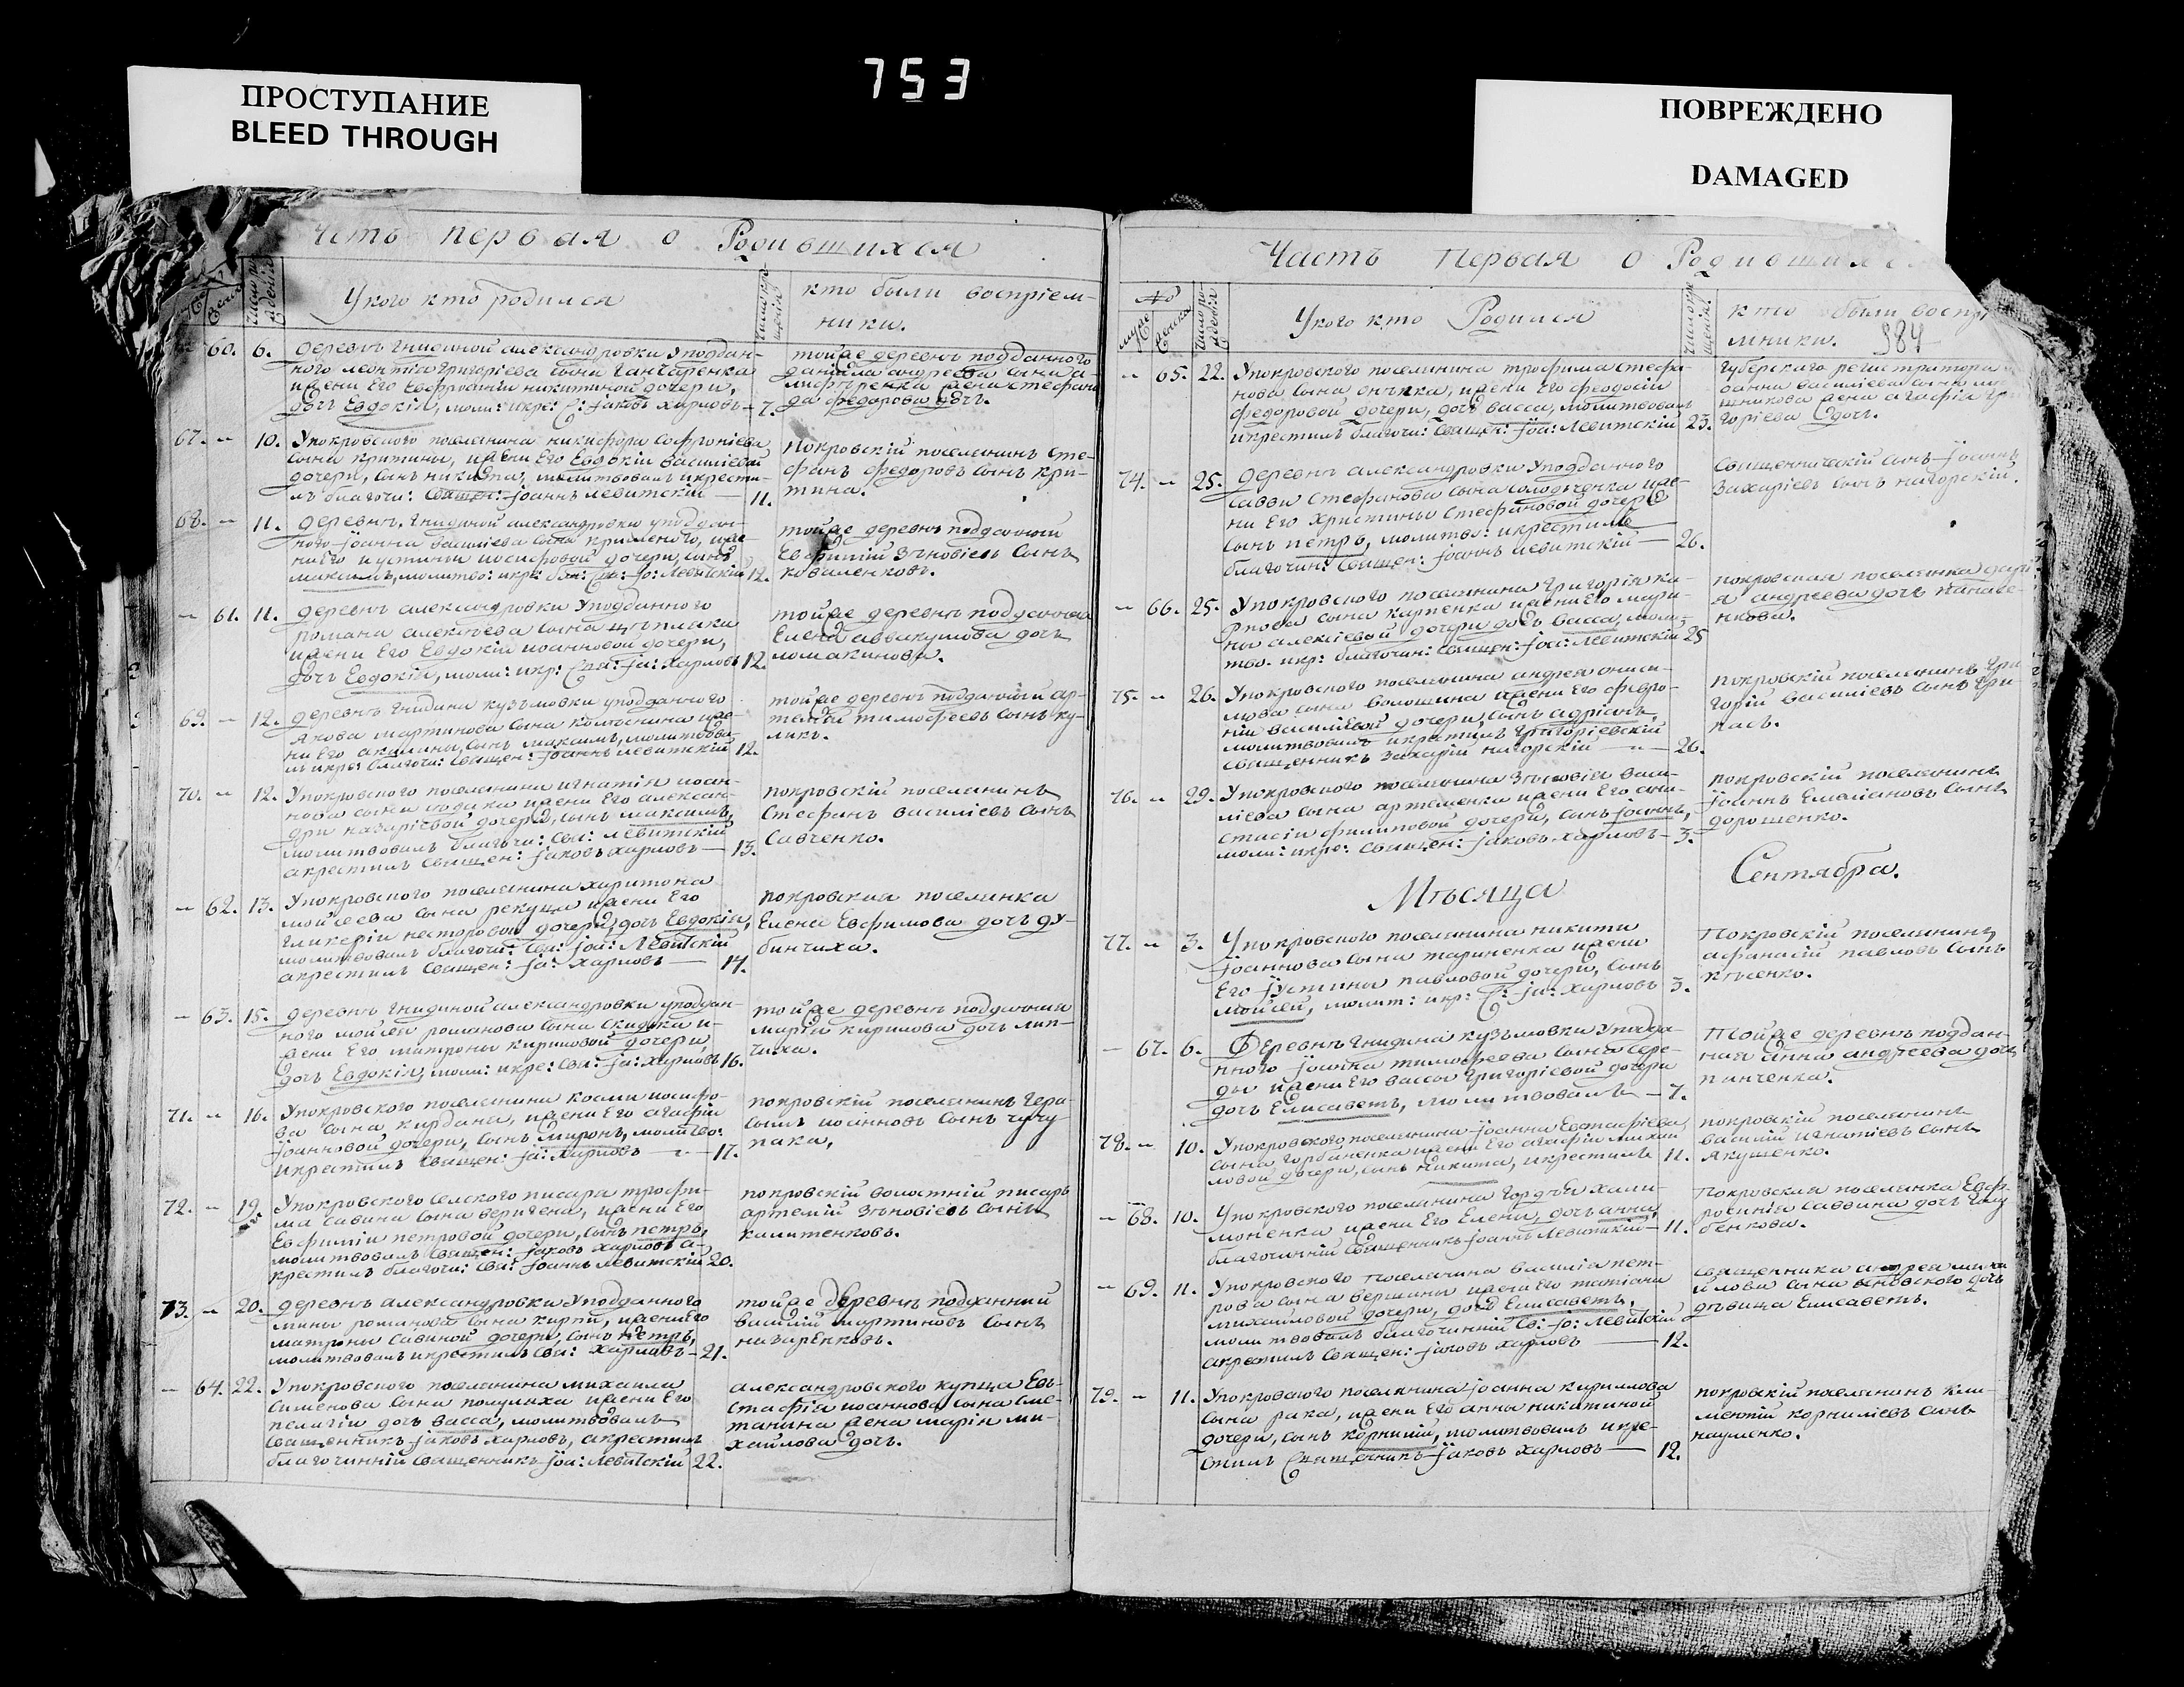 753
ПРОСТУПАНИЕ
BLEED THROUGH
ПОВРЕЖДЕНО
DAMAGED
первая о Родившихся
У кого кто родился
кто были воспріем-
ники.
60. 6. деревнѣ гнидиной александровки у поддан-
ного леонтія григоріева сына ганчаренка
и жени его Евфросиніи никитиной дочери,
дочь Евдокія, моли: и кре: С: Јаковъ Харловъ - 7.
той же деревнѣ подданного
данила андреева сына
жена стефани
да федорова дочь.
67. - 10. У покровского поселянина никифора Софроніева
сына критини, и жени Его Евдокіи василіевой
дочери, сынъ никита, молитвовалъ и крести-
лъ благочи: Свящ: Јоаннъ левитскій — 11.
Покровскій поселянинъ Сте-
фанъ федоровъ сынъ кри-
тина.
68. - 11. деревнѣ гнидиной александровки у поддан-
ного Јоанна василіева сына
ни Его иустини иосифовой дочери, сынъ
максимъ, молитво: и кре: бла: Св: Јо: Левитскій 12.
той же деревнѣ подданный
Евфимій Зѣновіевъ Сынъ
коваленковъ.
- 61. 11. деревнѣ александровки У подданного
романа алексѣева сына
и жени Его Евдокіи иоанновой дочери,
дочь Евдокія, моли: и кр: Свя: Ја: Харловъ 12.
той же деревнѣ подданная
Елена аввакумова дочь
ломакинова.
69. - 12. деревнѣ гнидина кузьмовки у подданного
Якова мартинова сына
ни Его акилины, сынъ максимъ, молитвова-
лъ и кре: благочи: Священ: Јоаннъ левитскій 12.
той же деревнѣ подданный ар-
темій тимофеевъ сынъ ку-
ликъ.
70. - 12. У покровского поселянина игнатія иоан-
нова сына и жени Его алексан-
дри назаріевой дочери, сынъ максимъ,
молитвовалъ благочи: Свя: левитскій
а крестилъ Священ: Јаковъ Харловъ — 13.
покровскій поселянинъ
Стефанъ василіевъ сынъ
Савченко.
- 62. 13. У покровского поселянина харитона
мойсеева сына рекуца и жени Его
гликеріи несторовой дочери, дочь Евдокія,
молитвовалъ благочи: Свя: Јоа: Левитскій
а крестилъ Священ: Ја: Харловъ — 14.
покровская поселянка
Елена Евфимова дочь ду-
бинчиха.
- 63. 15. деревнѣ гнидиной александровки у поддан-
ного мойсея романова сына и
жени Его матроны кириловой дочери,
дочь Евдокія, моли: и кре: Свя: Ја: Харловъ 16.
той же деревнѣ подданная
марія кирилова дочь лип-
чиха.
71. - 16. У покровского поселянина косми иосифо-
ва сына кирдана, и жени Его агафіи
Јоанновой дочери, сынъ миронъ, молитво:
и крестилъ Священ: Ја: Харловъ — 17.
покровскій поселянинъ гера-
симъ иоанновъ сынъ чучу
пака,
72. - 19. У покровского селского писара трофи-
ма савина сына веригена, и жени Его
Евфиміи петровой дочери, сынъ петръ,
молитвовалъ Священ: Јаковъ Харловъ а-
крестилъ благочи: Свя: Јоаннъ левитскій 20.
покровскій волостній писарь
артемій Зѣновіевъ сынъ
калитенковъ.
73. - 20. деревнѣ александровки У подданного
мины романова сына и жени Его
матроны савиной дочери, сынъ петръ,
молитвовалъ и крестилъ Свя: Харловъ - 21.
той же деревнѣ подданный
василій мартиновъ сынъ
назаренковъ.
- 64. 22. У покровского поселянина михаила
Сименова сына и жени Его
пелагіи дочь васса, молитвовалъ
Священникъ Јаковъ Харловъ, а крестилъ
благочинній Священникъ Јоа: Левитскій 22.
александровского купца Евъ-
стафія иоаннова сына сме-
танина жена марія ми-
хайлова дочь.
Часть Первая о
№
У кого кто Родился
кто были
мники. 384
- 65. 22. У покровского поселянина трофима стефа-
нова сына и жени Его феодосіи
федоровой дочери, дочь васса, молитвовалъ
и крестилъ благочи: Свящ: Јоа: Левитскій 23.
губернского регистратора
василіева сына
жена агафія гри
горіева дочь.
74. - 25. деревнѣ александровки У подданного
савви стефанова сына же-
ни Его христины стефановой дочери
сынъ петръ, молитво: и крестилъ
благочин: Священ: Јоаннъ левитскій — 26.
Священническій сынъ Јоаннъ
Захаріевъ сынъ нагорскій.
- 66. 25. У покровского поселянина григорія ка-
рпова сына карпенка и жени Его мари-
ны алексіевой дочери дочь васса, моли-
тво: и кр: благочин: Священ: Јоа: Левитскій 25
покровская поселянка дарі
я андреева дочь панасе-
нкова.
75. - 26. У покровского поселянина андрея ониси-
мова сына волошина и жени Его февро-
ніи василіевой дочери, сынъ адріанъ,
молитвовалъ и крестилъ григоріевскій
священникъ Захарій нагорскій — 26.
покровскій поселянинъ гри
горій василіевъ сынъ гри-
насъ.
76. - 29. У покровского поселянина Зѣновія васи-
лієва сына артеменка и жени Его ана-
стасіи филиповой дочери, сынъ Јоаннъ,
моли: и кре: Священ: Јаковъ Харловъ - 3.
покровскій поселянинъ
Јоаннъ Емеліановъ сынъ
дорошенко.
Мѣсяца Сентября.
77. - 3. У покровского поселянина никити
Јоаннова сына мариненка и жени
Его Јустины павловой дочери, сынъ
мойсей, молит: и кр: С: Ја: Харловъ 3.
Покровскій поселянинъ
афанасій павловъ сынъ
кѣсенко.
- 67. 6. Деревнѣ гнидина кузьмовки У подда-
нного Јоанна тимофеева сына сере-
ды и жени Его вассы григоріевой дочери
дочь Елисаветъ, молитвовалъ — 7.
Той же деревнѣ поддан-
ная анна андреева дочь
панченка.
78. - 10. У покровского поселянина Јоанна Евстафіева
сына горбаненка и жени Его агафіи михаи
ловой дочери, сынъ никита, и крестилъ 11.
покровскій поселянинъ
василій игнатіевъ сынъ
Якушенко.
- 68. 10. У покровского поселянина гордѣя хали-
моненка и жени Его Елены, дочь анна,
благочинній Священникъ Јоаннъ Левитскій — 11.
Покровская поселянка Евф-
росинія саввина дочь голу
бенкова.
- 69. 11. У покровского Поселянина василія пет-
рова сына вершини и жени Его татіаны
михаиловой дочери, дочь Елисаветъ,
молитвовалъ благочинній Св: Јо: Левитскій
а крестилъ Священ: Јаковъ Харловъ — 12.
Священника андрея миха
йлова сына дочь
дѣвица Елисаветъ.
79. - 11. У покровского поселянина Јоанна кирилова
сына рака, и жени Его анны никитиной
дочери, сынъ корнилій, молитвовалъ и кре-
стилъ Священникъ Јаковъ Харловъ — 12.
покровскій поселянинъ кли-
ментій корниліевъ сынъ
науменко.